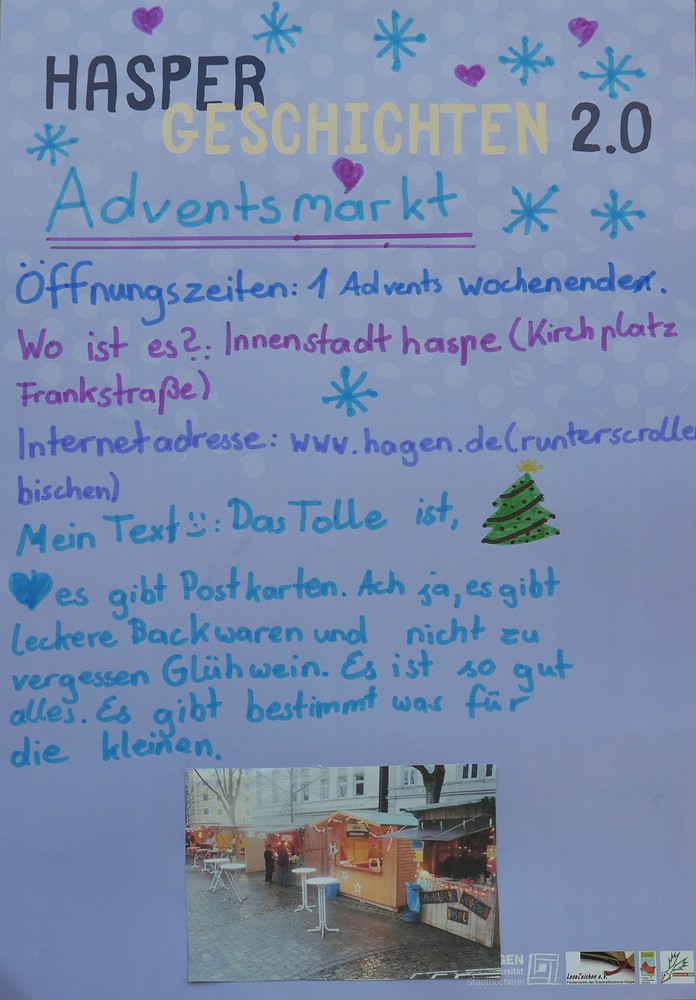 HASPER
GESCHICHTEN 2.0
Adventsmarkt
Öffnungszeiten: 1 Advents wochenenden.
Wo ist es?: Innenstadt haspe (Kirchplatz
Frankstraße)
Internetadresse: www.hagen.de (runterscrolle
bischen)
Mein Text: Das Tolle ist,
es gibt Postkarten. Ach ja, es gibt
leckere Backwaren und nicht zu
vergessen Glühwein. Es ist so gut
alles. Es gibt bestimmt was für
die kleinen.
Stadtbücherei
LeseZeichen e.V.
Förderverein der Stadtteilbücherei Haspe